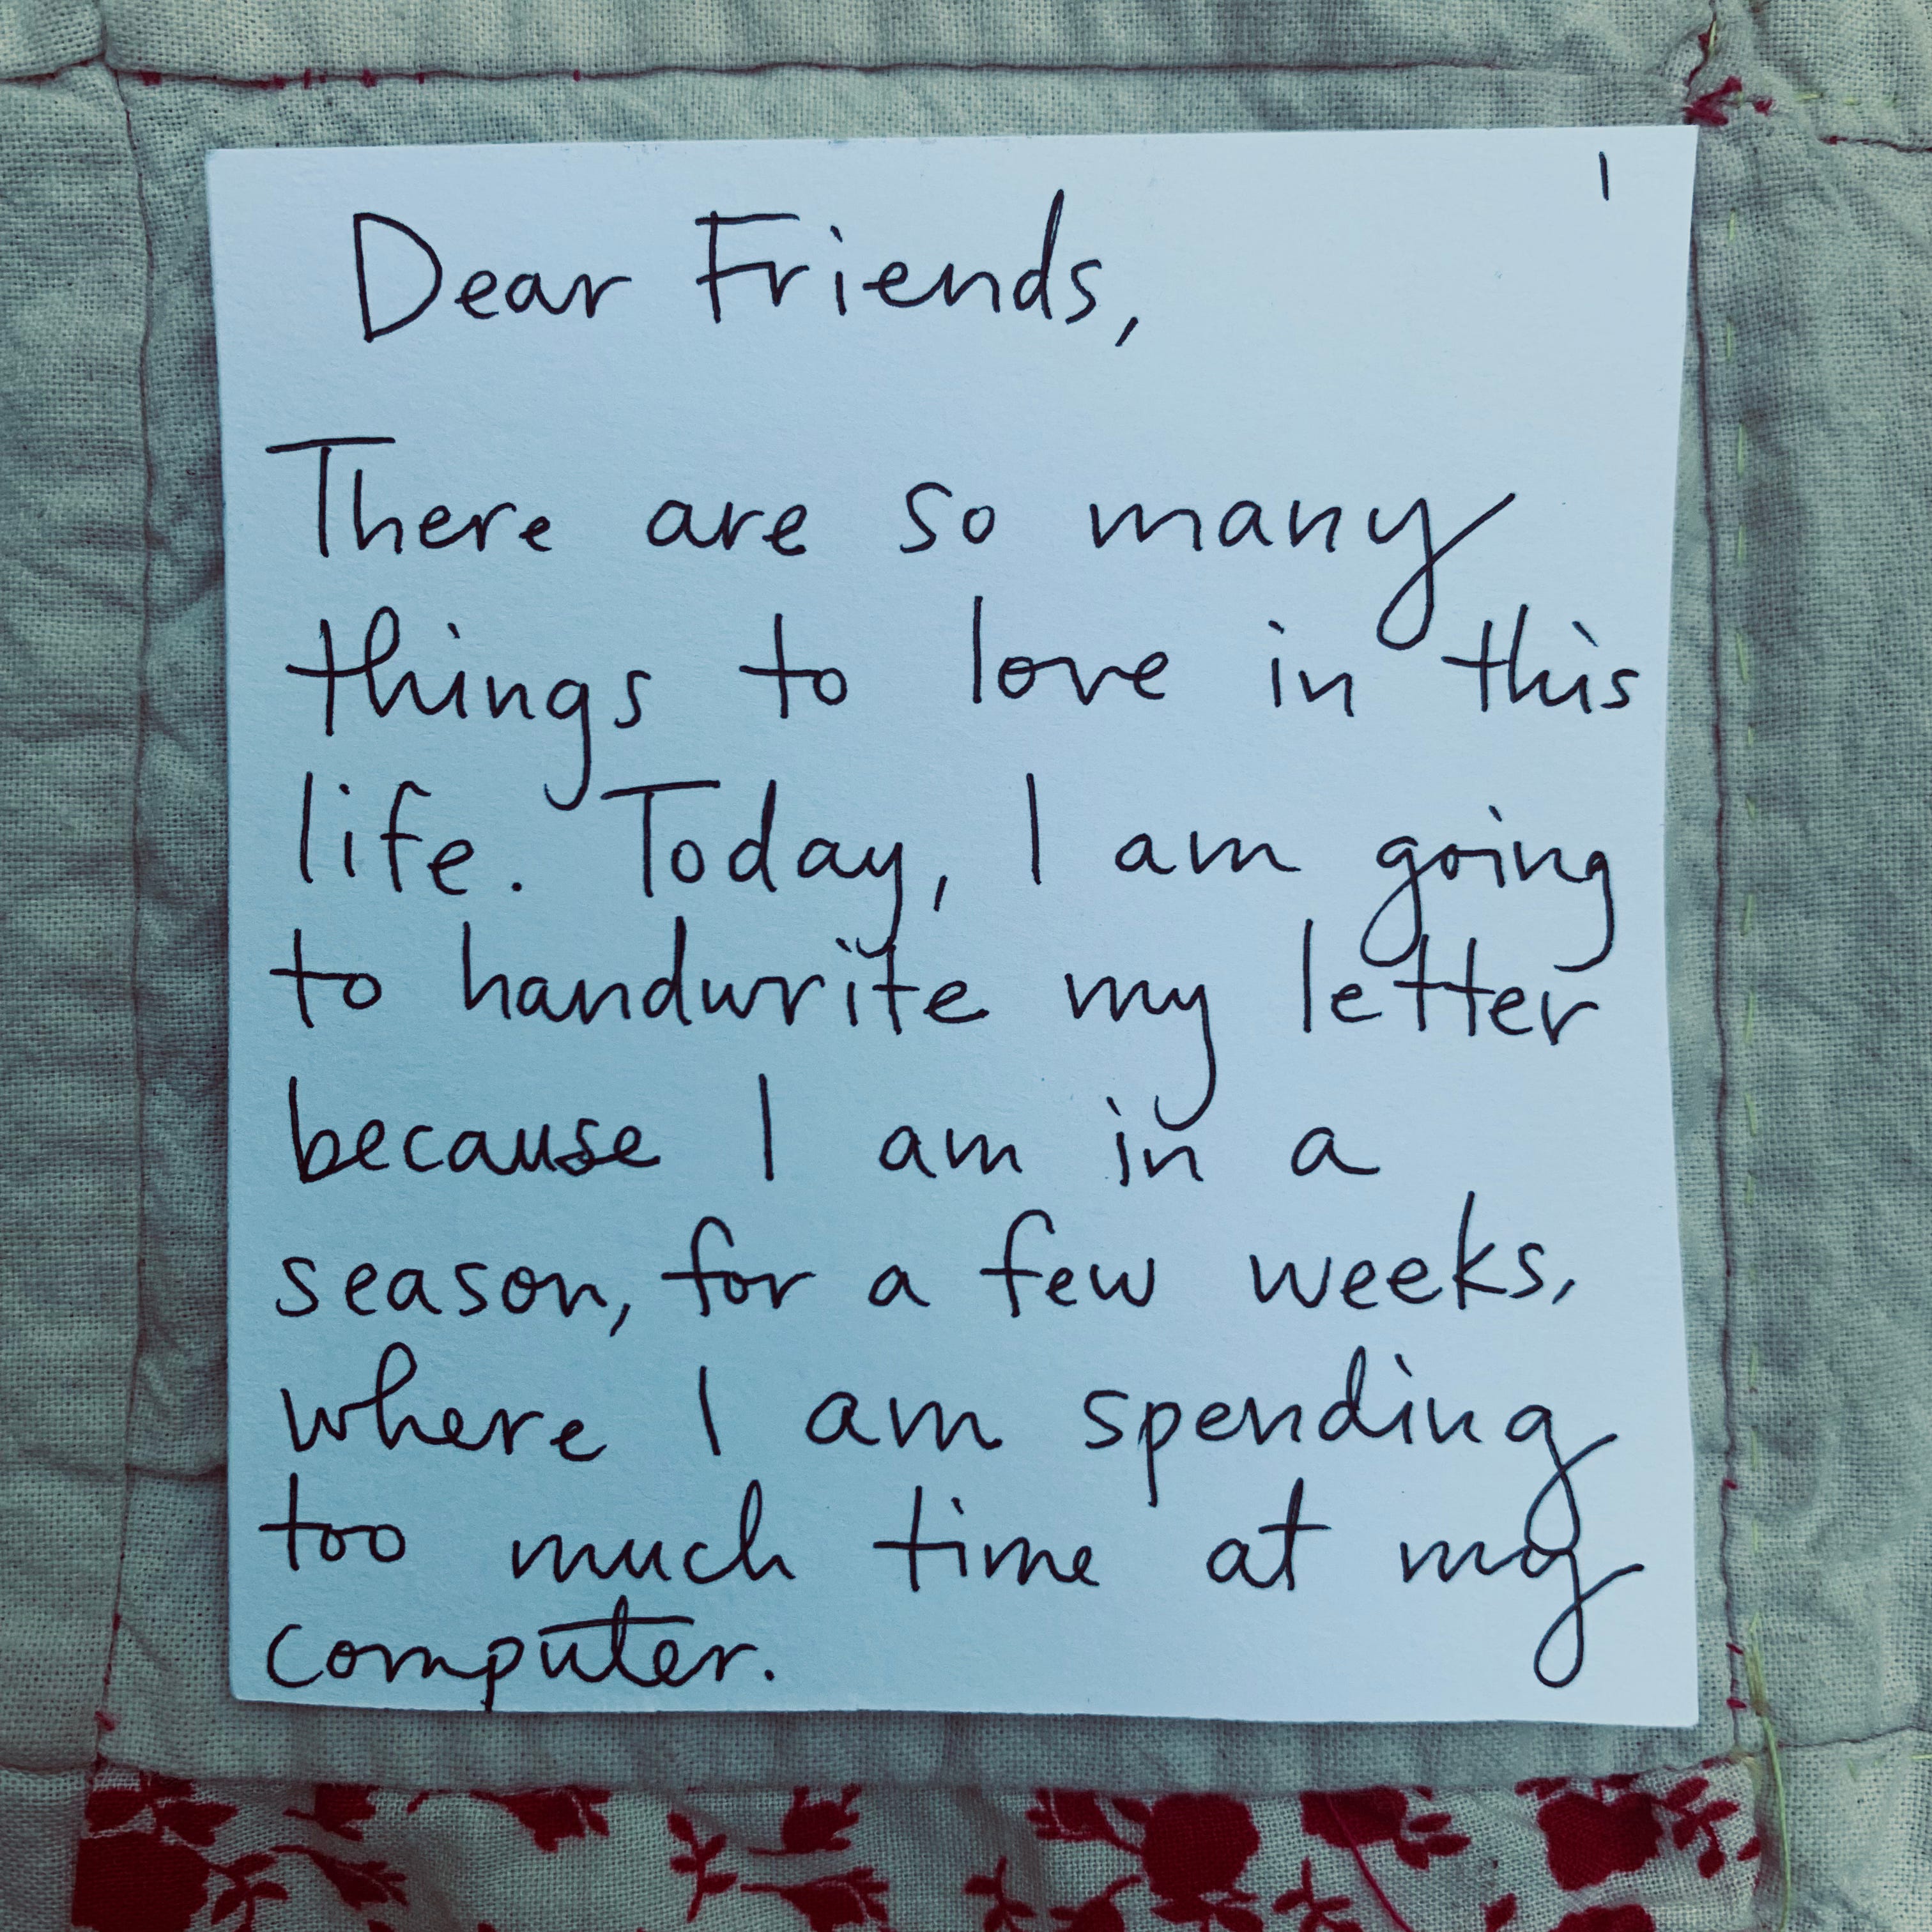 1
Dear Friends,
There are so many
things to love in this
life. Today, I am going
to handwrite my letter
because I am in a
season, for a few weeks,
where I am spending
too much time at my
computer.